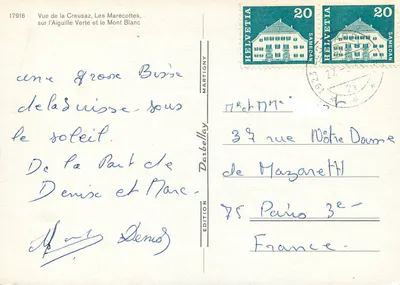 17916 Vue de la Creusaz, Les Marecottes,
sur l'Aiguille Verte et le Mont Blanc
une grosse Bise
de la Suisse sous
le soleil.
De la Part de
Denise et Marc.
Denise
EDITION Darbellay MARTIGNY
HELVETIA 20 SAMEDAN
HELVETIA 20 SAMEDAN
Mr et Mme
37 rue Nôtre Dame
de Mazareth
75 Paris 3e
France.